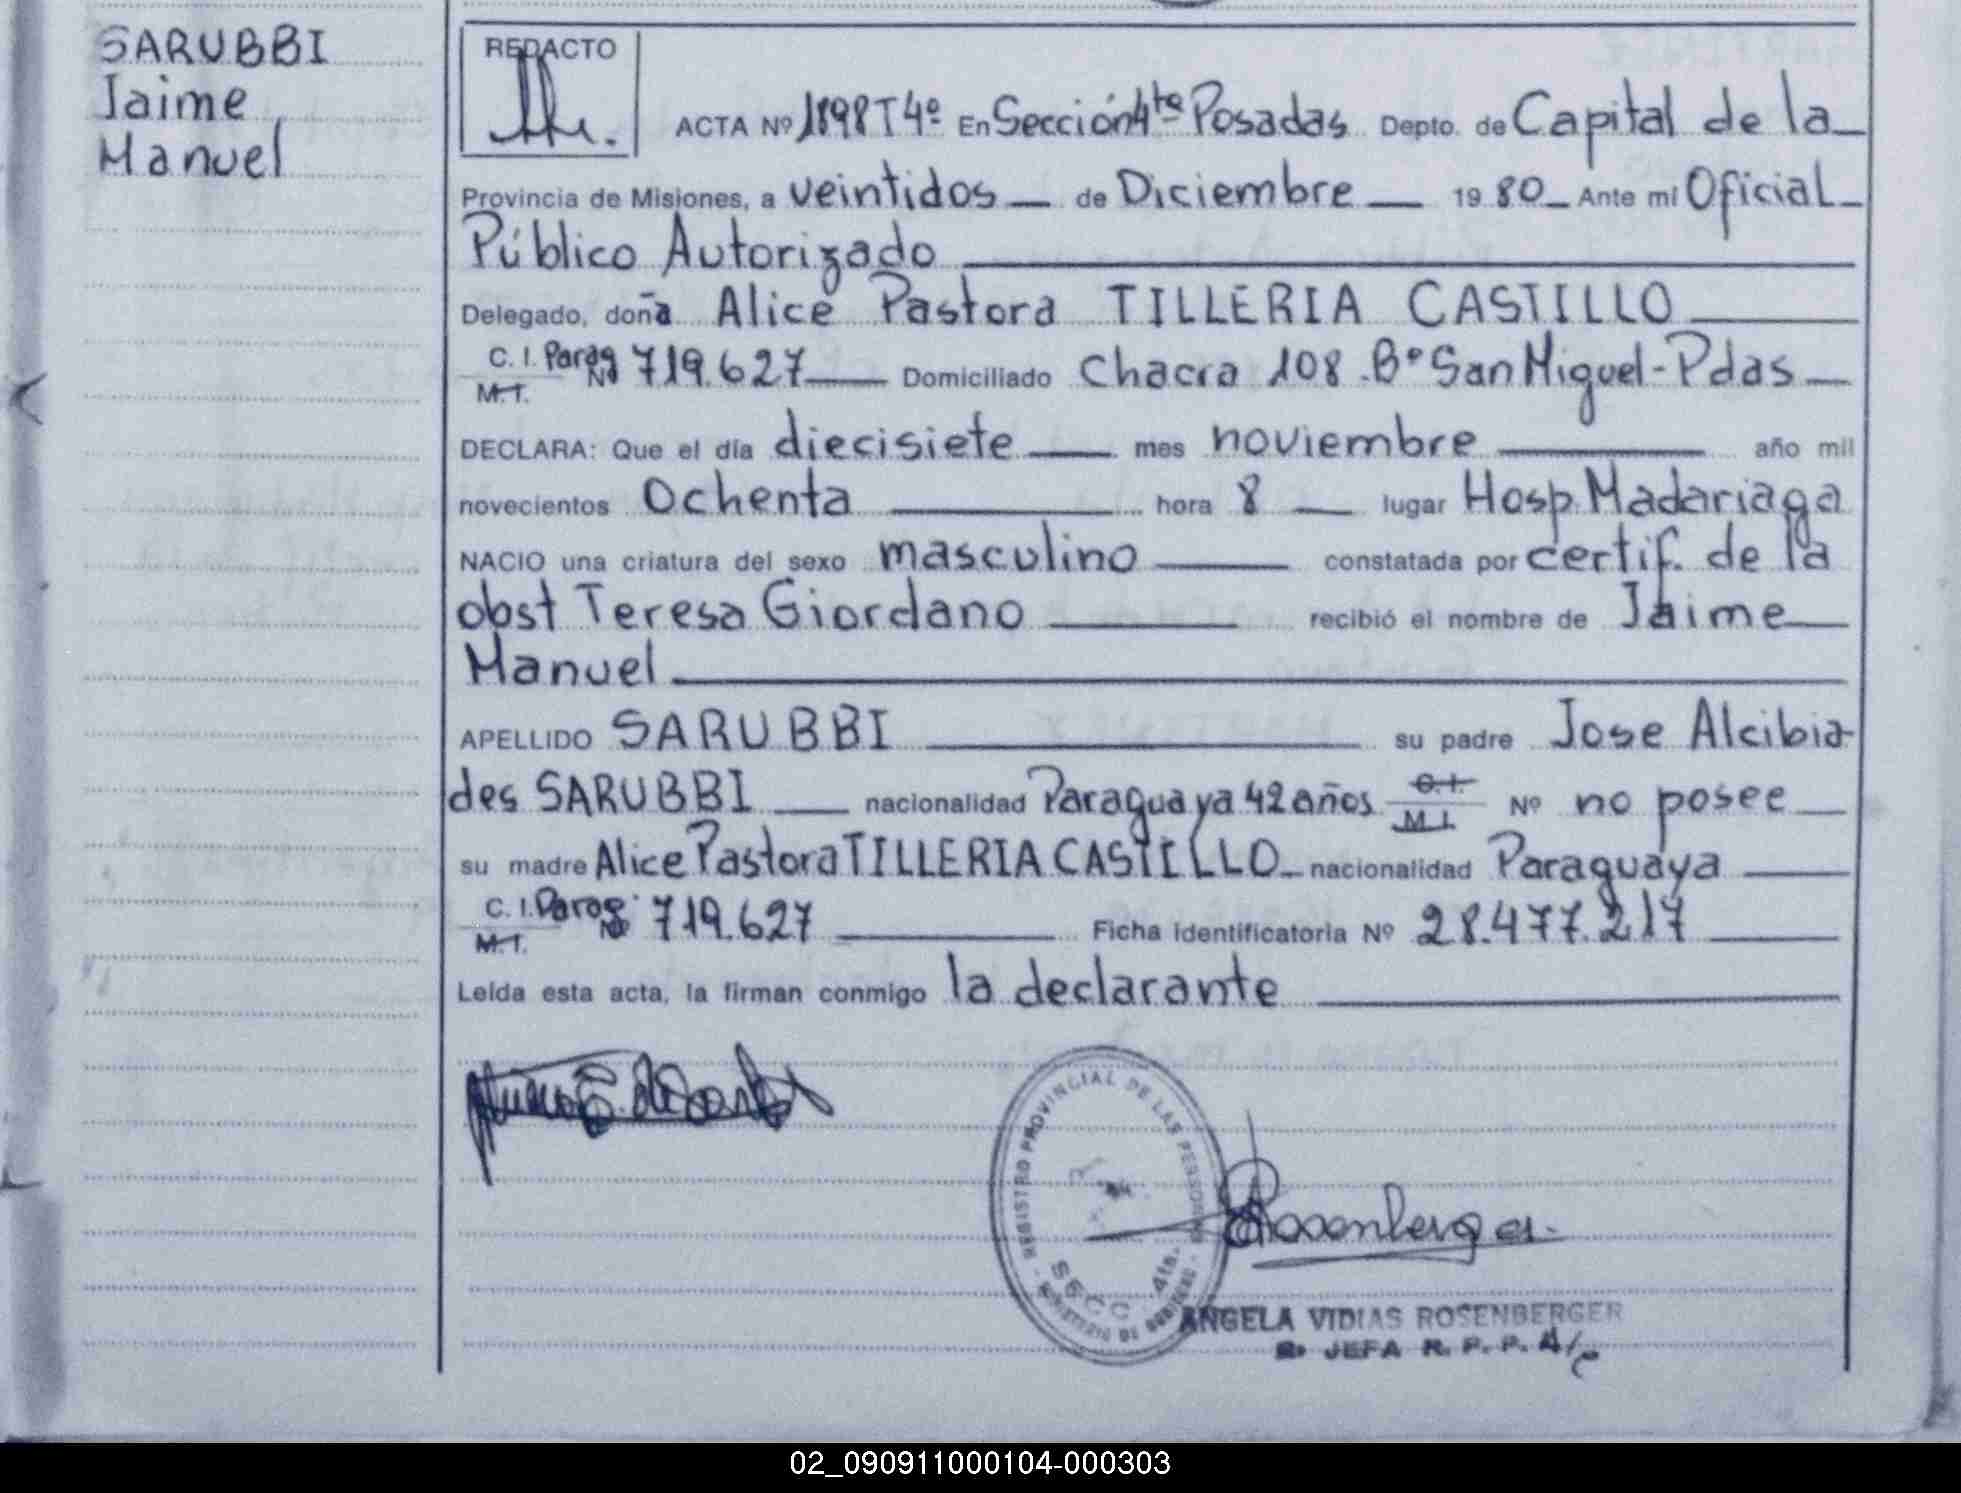 SARUBBI
Jaime
Manuel
REDACTO
ACTA Nº 1898 T 4º En Sección 4ta Posadas Depto. de Capital de la
Provincia de Misiones, a veintidos de Diciembre 19 80 Ante mi Oficial
Público Autorizado
Delegado, doña Alice Pastora TILLERIA CASTILLO
C. I. Parag Nº 719.627 Domiciliado Chacra 108 Bº San Miguel - Pdas
M. I.
DECLARA: Que el día diecisiete mes noviembre año mil
novecientos Ochenta hora 8 lugar Hosp. Madariaga
NACIO una criatura del sexo masculino constatada por certif. de la
obst Teresa Giordano recibió el nombre de Jaime
Manuel
APELLIDO SARUBBI su padre Jose Alcibia-
des SARUBBI nacionalidad Paraguaya 42 años C. I. M. I. Nº no posee
su madre Alice Pastora TILLERIA CASTILLO nacionalidad Paraguaya
C. I. Parag Nº 719.627 Ficha identificatoria Nº 28.477.217
M. I.
Leída esta acta, la firman conmigo la declarante
REGISTRO PROVINCIAL DE LAS PERSONAS
SECC. 4ta.
MINISTERIO DE GOBIERNO
Rosenberger
ANGELA VIDIAS ROSENBERGER
JEFA R. P. P. A/c
02_090911000104-000303